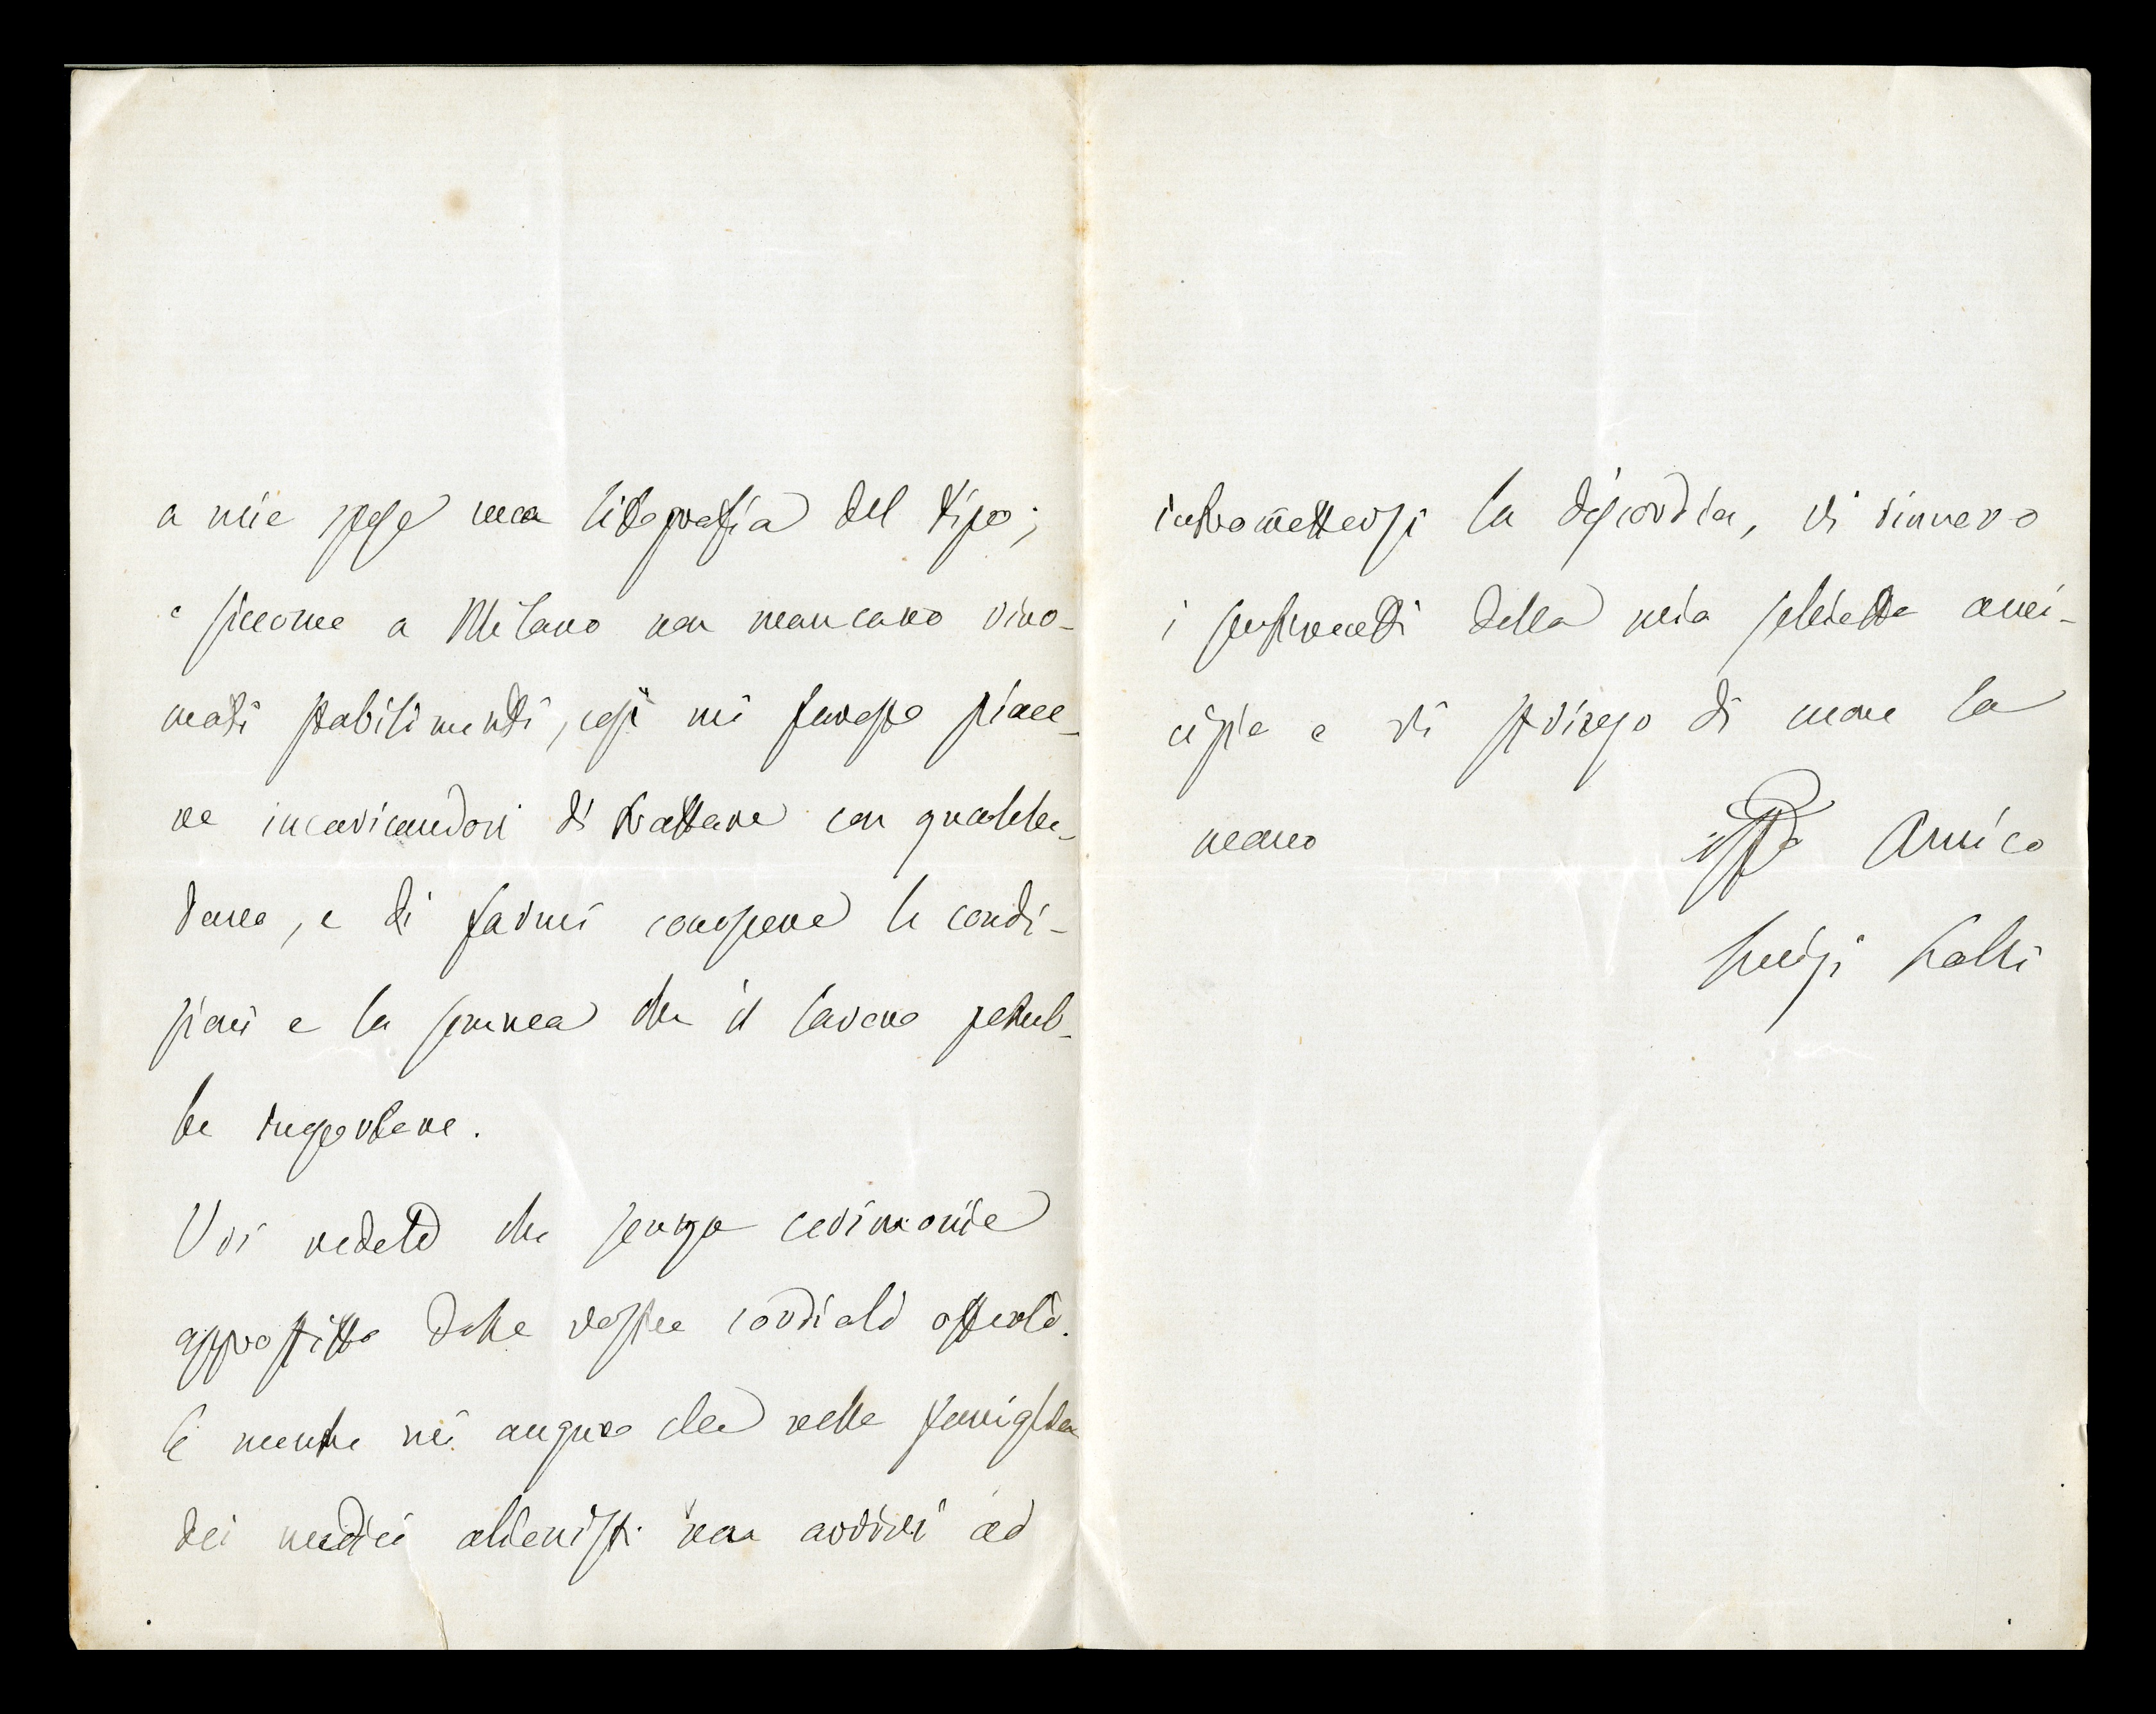 a mie spese una litografia del tipo;
e siccome a Milano non mancano rino-
mati stabilimenti, così mi fareste piace-
re incaricandovi di trattare con qualche-
duno, e di farmi conoscere le condi-
zioni e la somma che il lavoro potreb-
be importare.
Voi vedete che senza cerimonie
approfitto delle vostre cordiali offerte.
E mentre mi auguro che nella famiglia
dei medici alienisti non arrivi ad
intromettersi la discordia, vi rinnovo
i sentimenti della mia schietta ami-
cizia e vi stringo di cuore la
mano
Amico
Luigi